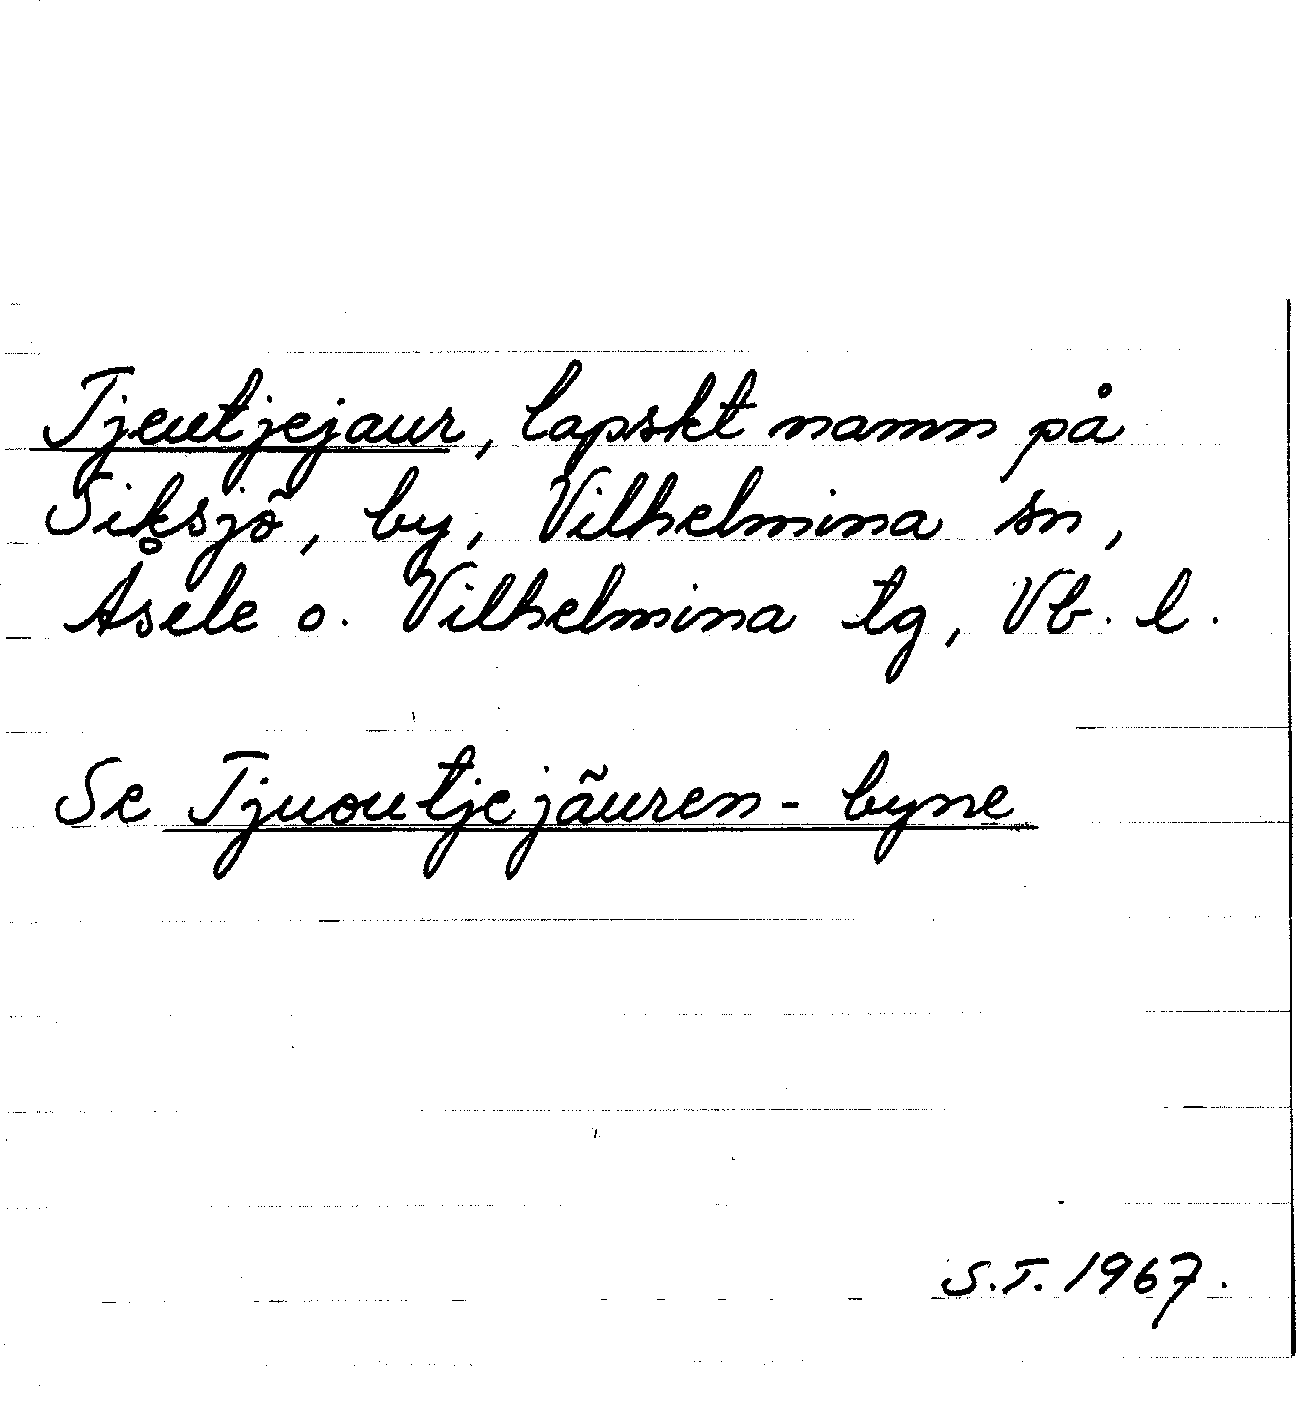 Tjeutjejaur, lapskt namn på
Siksjö, by, Vilhelmina sn,
Åsele o. Vilhelmina tg, Vb. l.
Se Tjuoutjejäuren - byne
S.T. 1967.